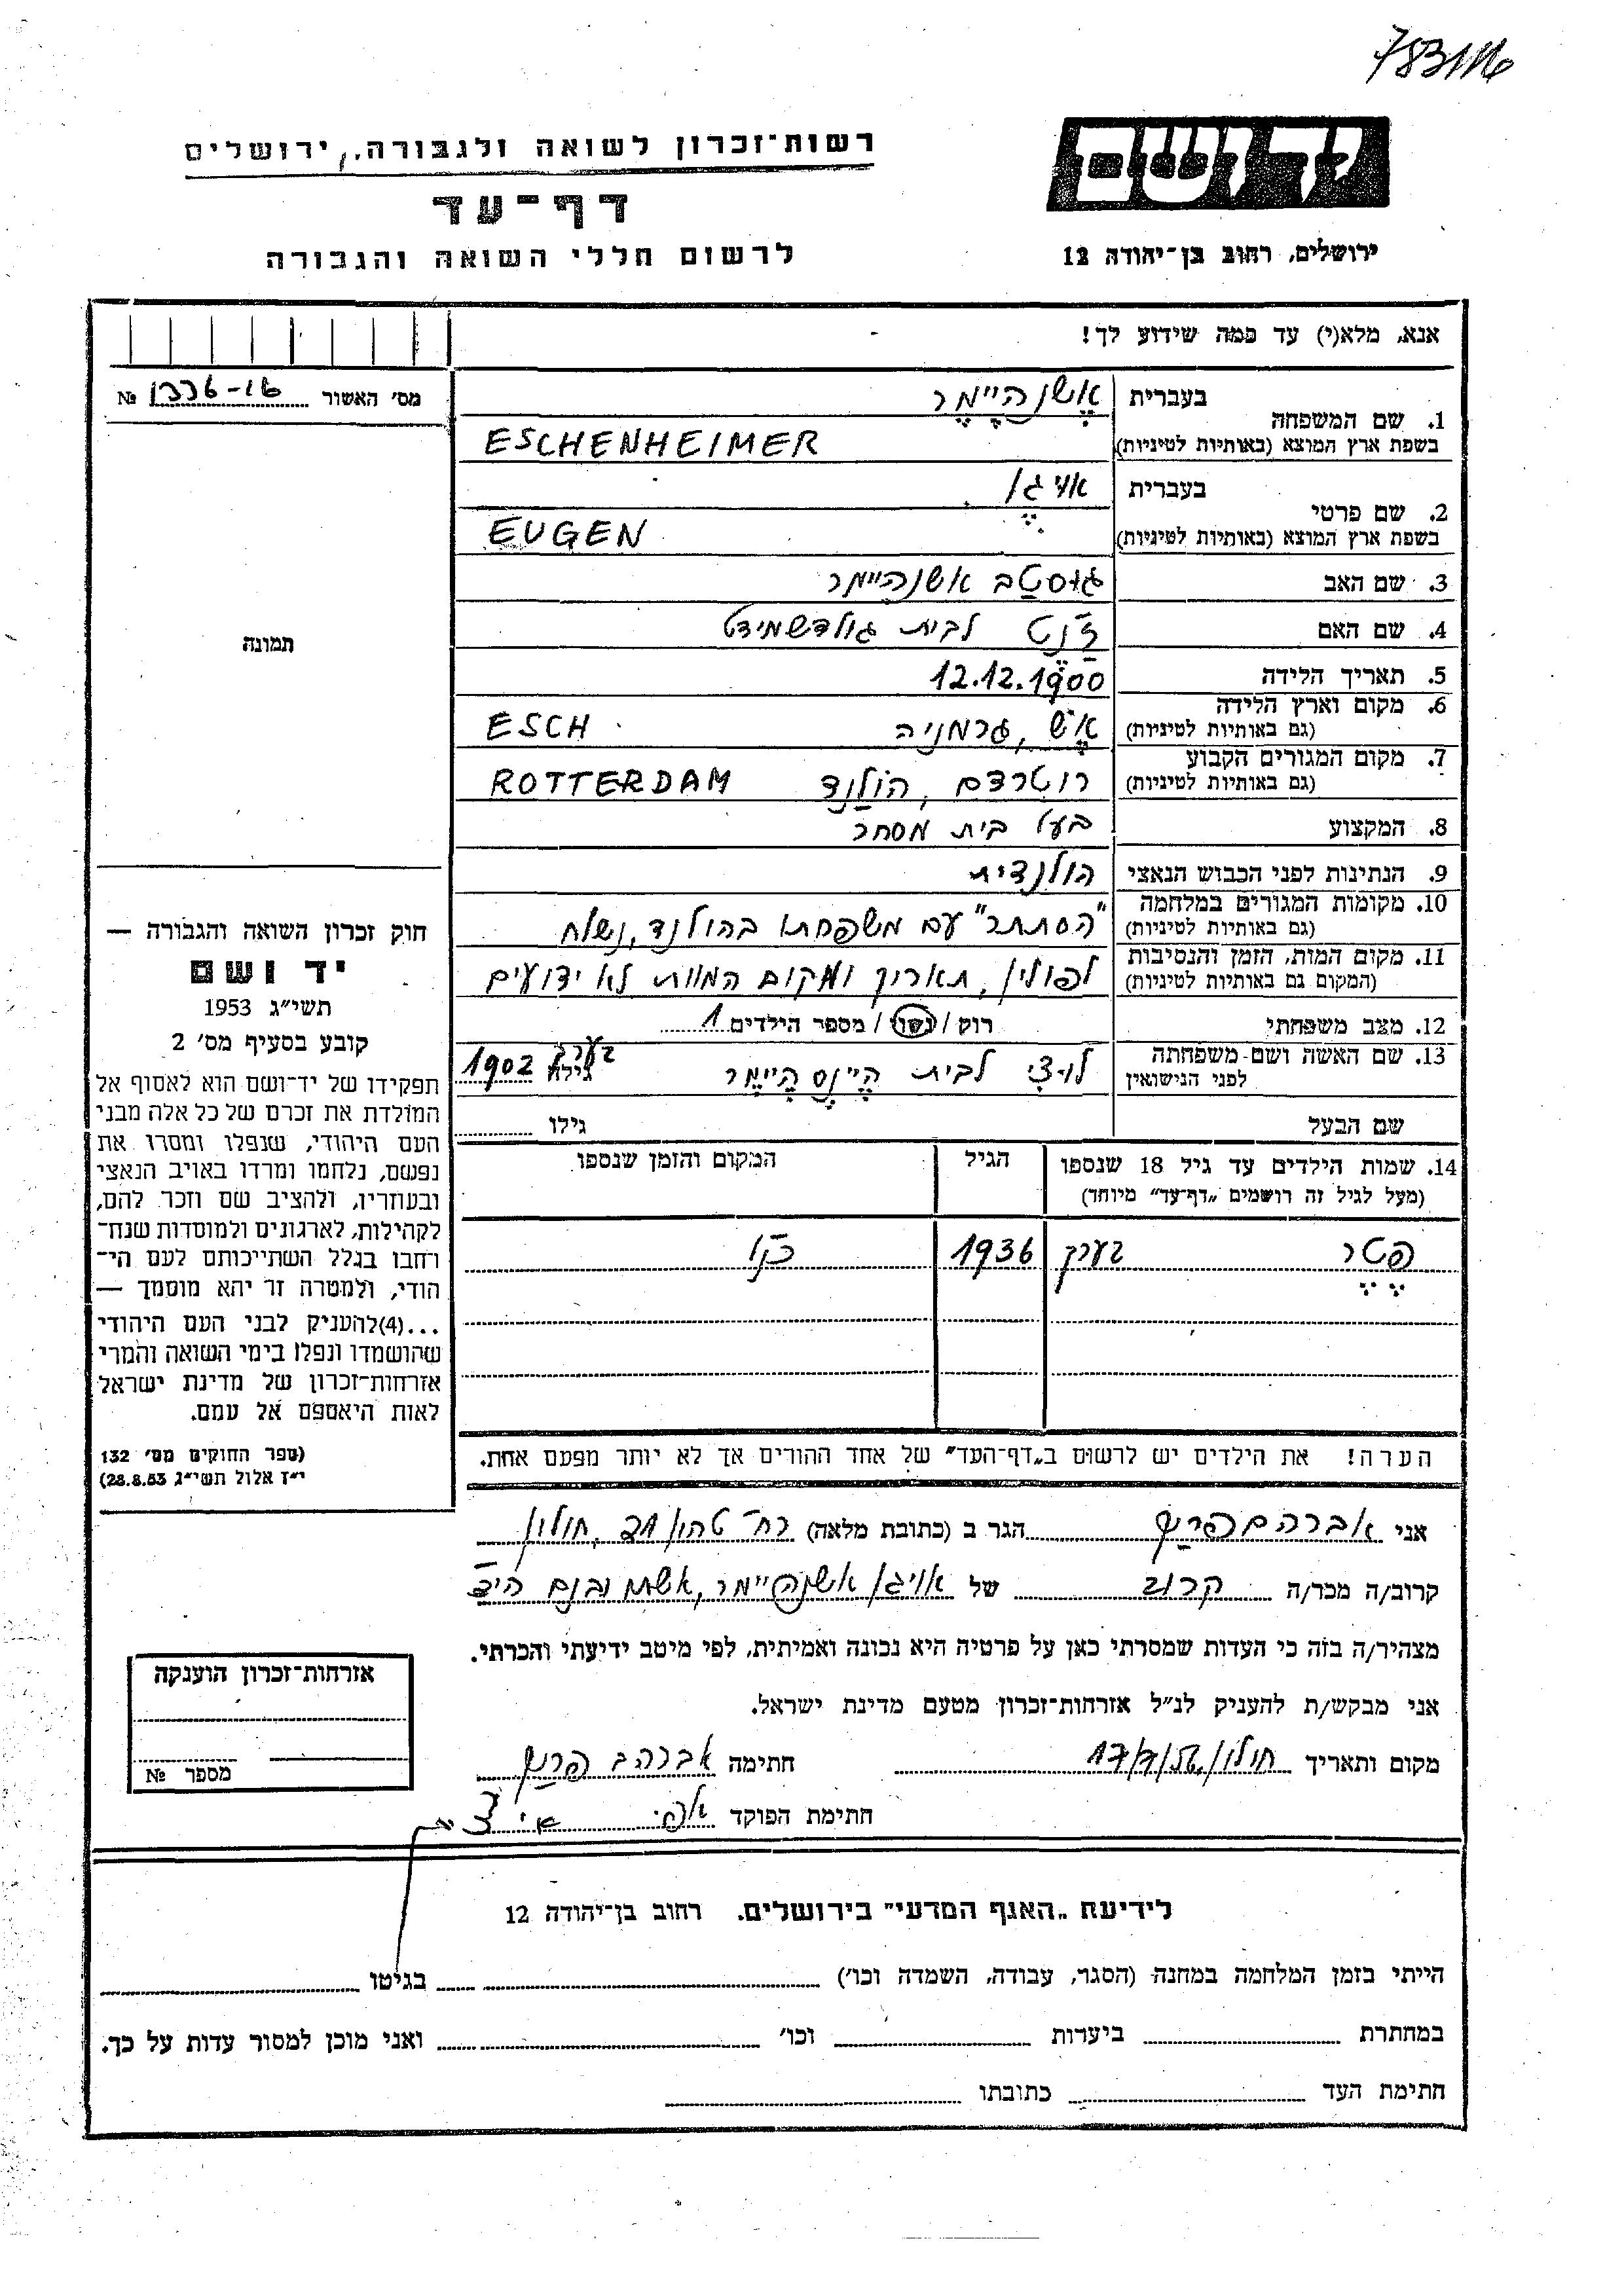 783116
יד ושם
ירושלים, רחוב בן־יהודה 12
רשות־זכרון לשואה ולגבורה, ירושלים
דף־עד
לרשום חללי השואה והגבורה
אנא, מלא(י) עד כמה שידוע לך!
מס׳ האשור №
1. שם המשפחה בעברית אשנהיימר
בשפת ארץ המוצא (באותיות לטיניות) ESCHENHEIMER
2. שם פרטי בעברית אויגן
בשפת ארץ המוצא (באותיות לטיניות) EUGEN
3. שם האב גוסטב אשנהיימר
4. שם האם ז׳נט לבית גולדשמידט
5. תאריך הלידה 12.12.1900
6. מקום וארץ הלידה (גם באותיות לטיניות) אש, גרמניה ESCH
7. מקום המגורים הקבוע (גם באותיות לטיניות) רוטרדם, הולנד ROTTERDAM
8. המקצוע בעל בית מסחר
9. הנתינות לפני הכבוש הנאצי הולנדית
10. מקומות המגורים במלחמה (גם באותיות לטיניות) "הסתתר" עם משפחתו בהולנד, נשלח
11. מקום המות, הזמן והנסיבות (המקום גם באותיות לטיניות) לפולין, תאריך ומקום המוות לא ידועים
12. מצב משפחתי רוק / נשוי / מספר הילדים 1
13. שם האשה ושם משפחתה לפני הנישואין לוצי לבית היינסהיימר גילה בערך 1902
שם הבעל גילו
14. שמות הילדים עד גיל 18 שנספו הגיל המקום והזמן שנספו
(מעל לגיל זה רושמים „דף־עד" מיוחד)
פטר בערך 1936 כנ״ל
הערה! את הילדים יש לרשום ב„דף־העד" של אחד ההורים אך לא יותר מפעם אחת.
תמונה
חוק זכרון השואה והגבורה —
יד ושם
תשי״ג 1953
קובע בסעיף מס׳ 2
תפקידו של יד־ושם הוא לאסוף אל
המולדת את זכרם של כל אלה מבני
העם היהודי, שנפלו ומסרו את
נפשם, נלחמו ומרדו באויב הנאצי
ובעוזריו, ולהציב שם וזכר להם,
לקהילות, לארגונים ולמוסדות שנח־
רחבו בגלל השתייכותם לעם הי־
הודי, ולמטרה זו יהא מוסמך —
...(4)להעניק לבני העם היהודי
שהושמדו ונפלו בימי השואה והמרי
אזרחות־זכרון של מדינת ישראל
לאות היאספם אל עמם.
(ספר החוקים מס׳ 132
י״ז אלול תשי״ג 28.8.53)
אני אברהם הגר ב (כתובת מלאה) חולון
קרוב/ה מכר/ה קרוב של אויגן אשנהיימר, אשתו ובנם
מצהיר/ה בזה כי העדות שמסרתי כאן על פרטיה היא נכונה ואמיתית, לפי מיטב ידיעתי והכרתי.
אני מבקש/ת להעניק לנ״ל אזרחות־זכרון מטעם מדינת ישראל.
מקום ותאריך חולון חתימה אברהם
חתימת הפוקד
אזרחות־זכרון הוענקה
מספר №
לידיעת „האגף המדעי" בירושלים. רחוב בן־יהודה 12
הייתי בזמן המלחמה במחנה (הסגר, עבודה, השמדה וכו׳) בגיטו
במחתרת ביערות וכו׳ ואני מוכן למסור עדות על כך.
חתימת העד כתובתו